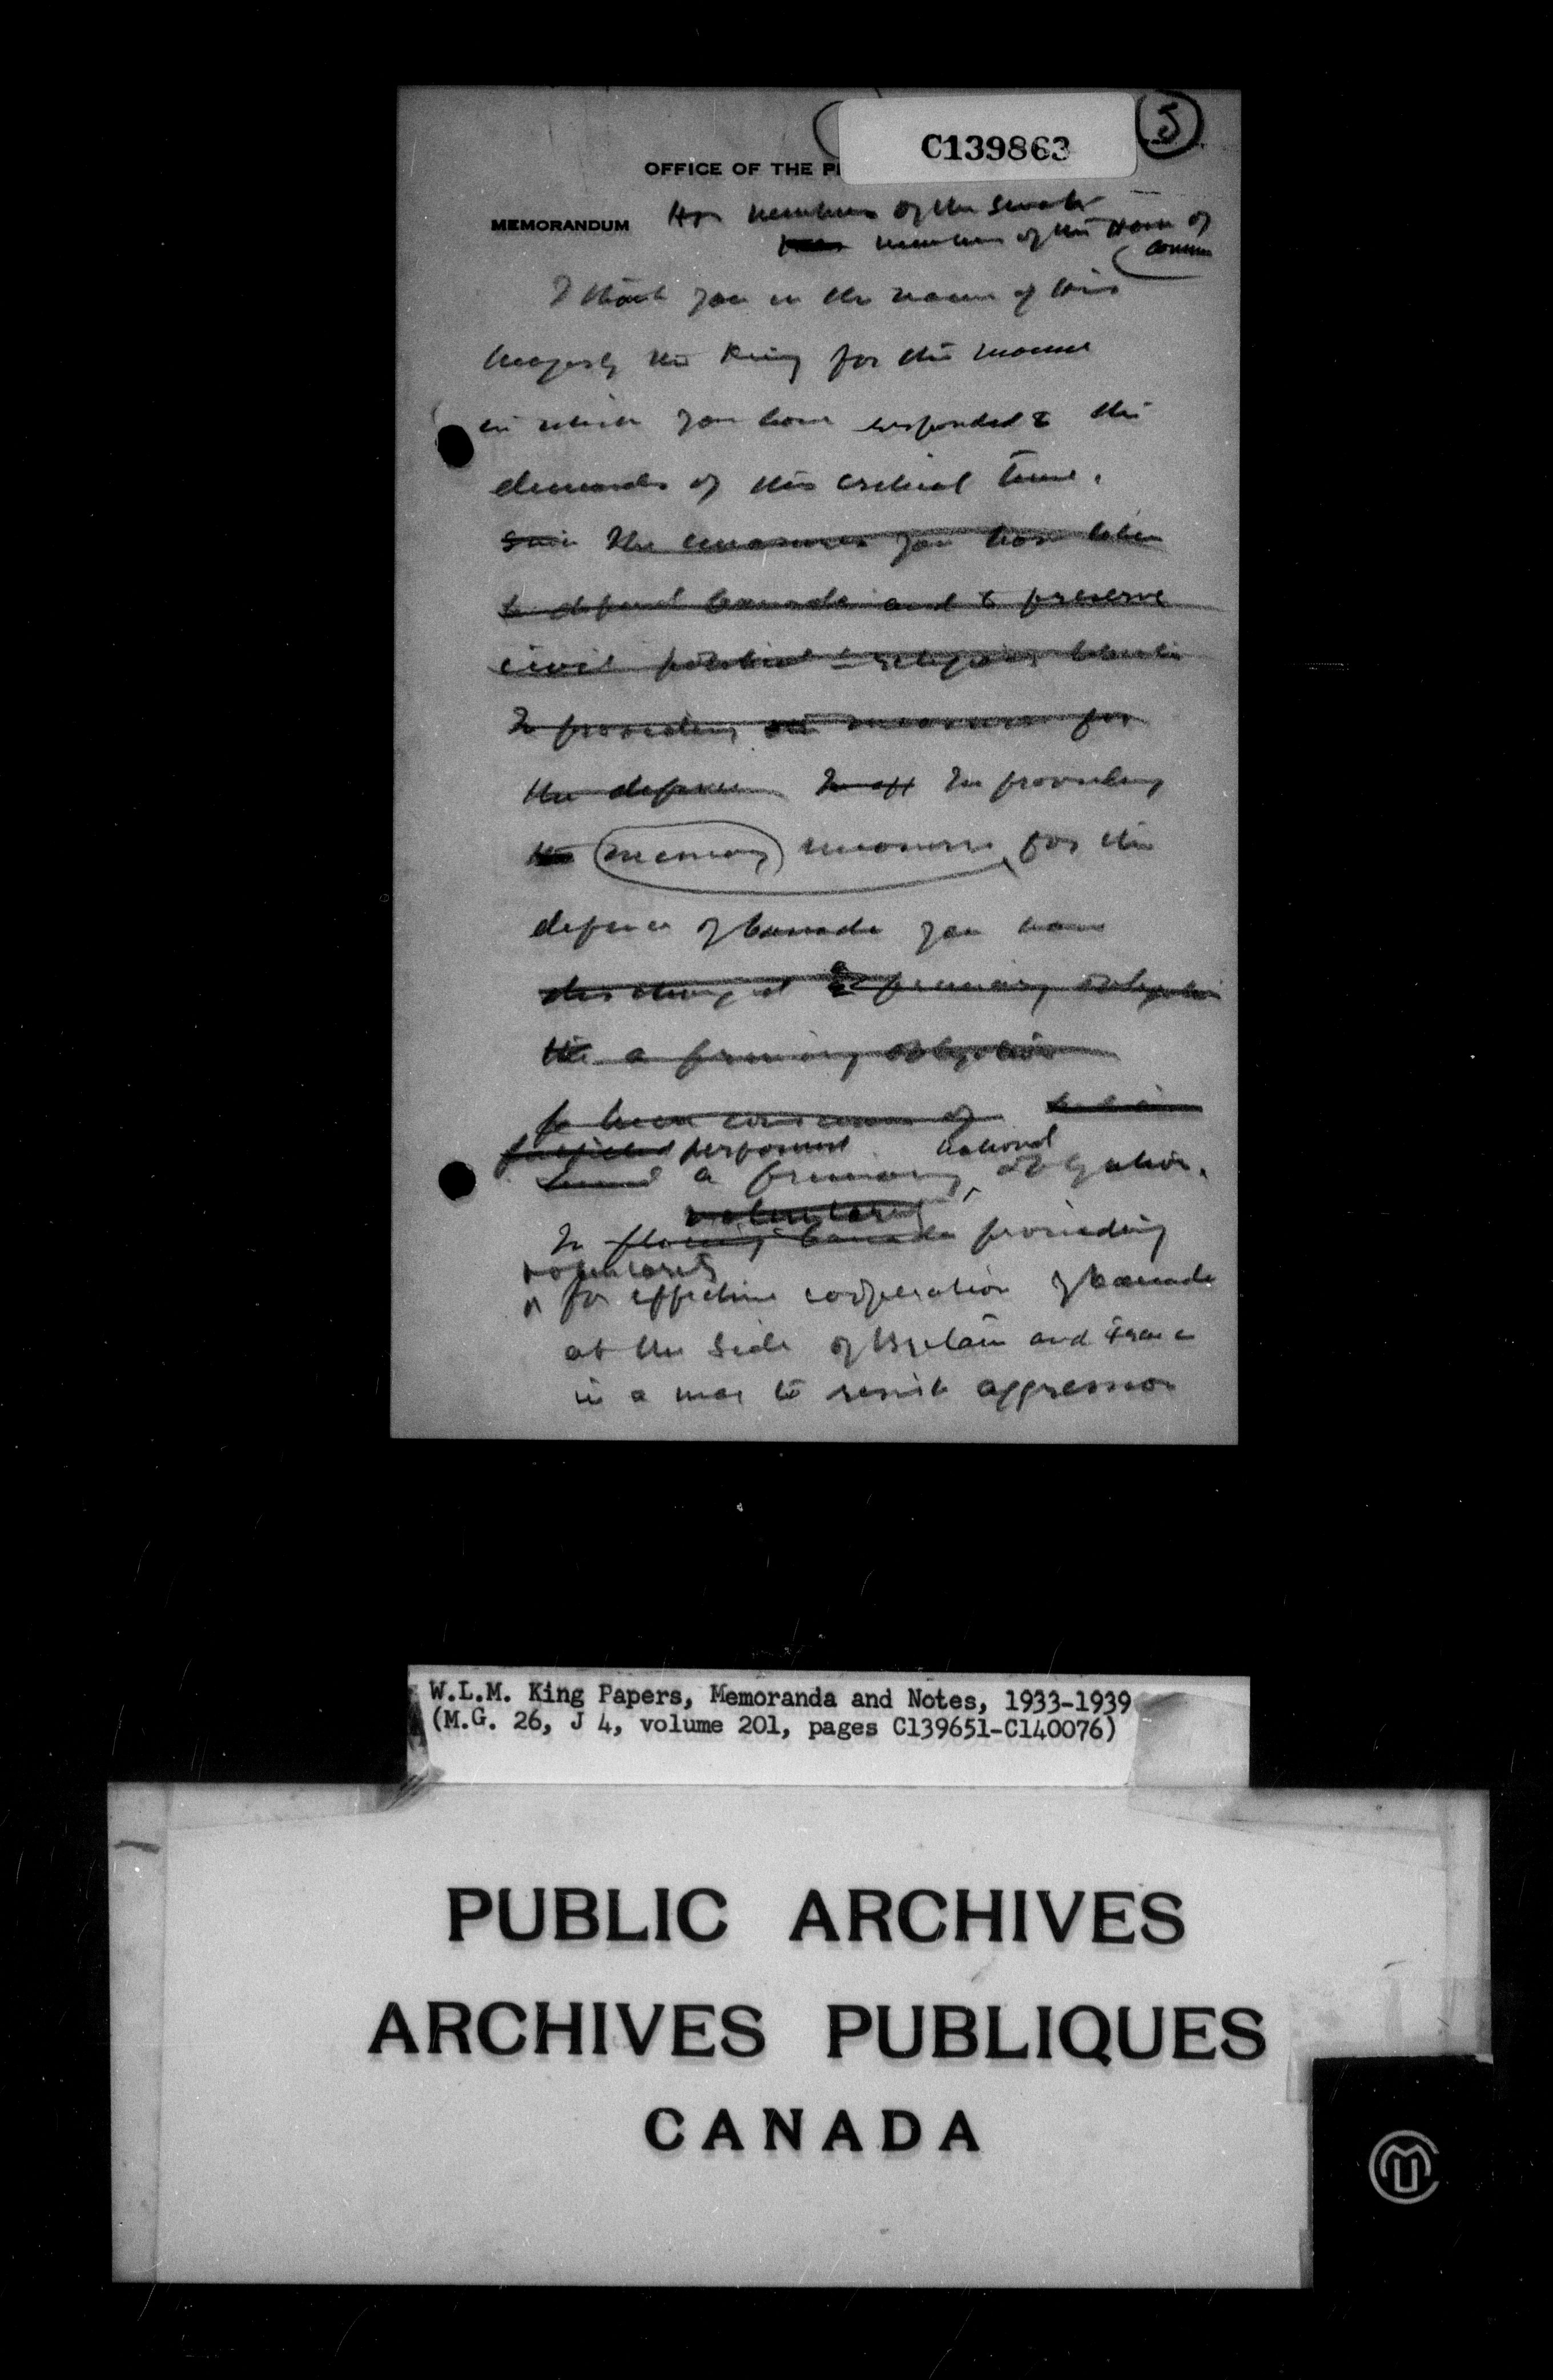 5
C139863
OFFICE OF THE P
MEMORANDUM Hon members of the Senate
members of the House of
Commons
I thank you in the name of His
Majesty the King for the manner
in which you have responded to the
demands of this critical time.
The measures you have taken
to defend Canada and to preserve
civil political & religious liberties
In providing measures for
the defence In eff In providing
the measures for the
defence of Canada you have
discharged a primary obligation
the a primary obligation
fulfilled performed national
a primary obligation.
voluntarily
In placing Canada providing
voluntarily
for effective cooperation of Canada
at the side of Britain and France
in a war to resist aggression
W.L.M. King Papers, Memoranda and Notes, 1933-1939
(M.G. 26, J 4, volume 201, pages C139651-C140076)
PUBLIC ARCHIVES
ARCHIVES PUBLIQUES
CANADA